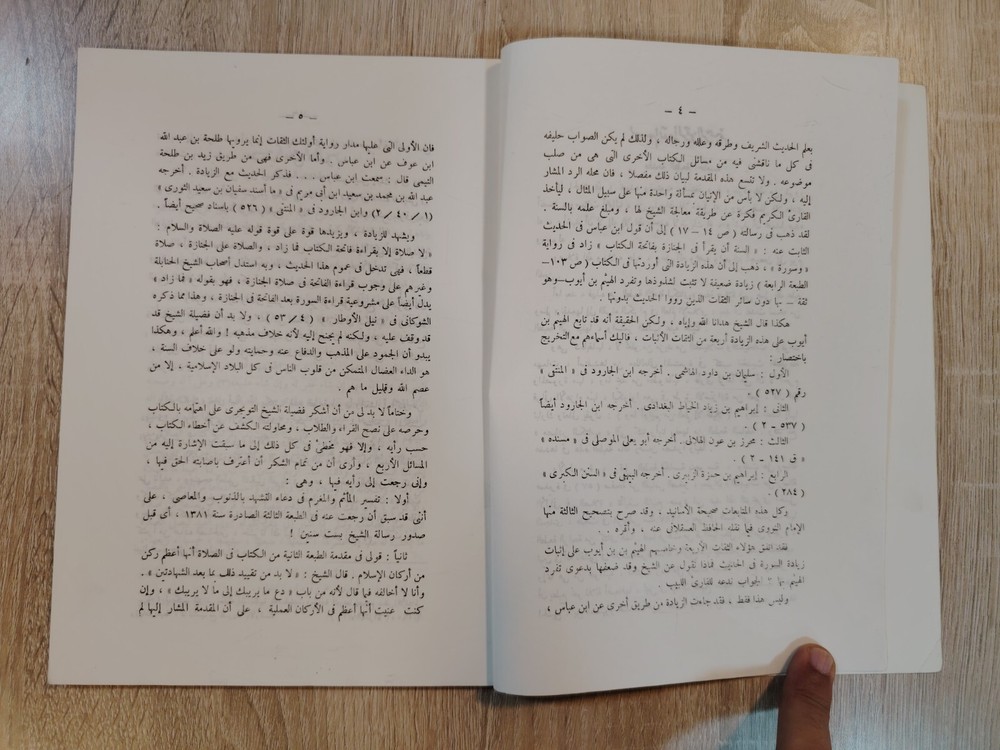 — ٤ —
بعلم الحديث الشريف وطرقه وعلله ورجاله ، ولذلك لم يكن الصواب حليفه
فى كل ما ناقشنى فيه من مسائل الكتاب الأخرى التى هى من صلب
موضوعه . ولا تتسع هذه المقدمة لبيان ذلك مفصلا ، فان محله الرد المشار
إليه ، ولكن لا بأس من الإتيان بمسألة واحدة منها على سبيل المثال ، ليأخذ
القارئ الكريم فكرة عن طريقة معالجة الشيخ لها ، ومبلغ علمه بالسنة .
لقد ذهب فى رسالته ( ص ١٤ – ١٧ ) إلى أن قول ابن عباس فى الحديث
الثابت عنه : « السنة أن يقرأ فى الجنازة بفاتحة الكتاب » زاد فى رواية
« وسورة » ، ذهب إلى أن هذه الزيادة التى أوردتها فى الكتاب ( ص ١٠٣–
الطبعة الرابعة ) زيادة ضعيفة لا تثبت لشذوذها وتفرد الهيثم بن أيوب–وهو
ثقة – بها دون سائر الثقات الذين رووا الحديث بدونها .
هكذا قال الشيخ هدانا الله وإياه ، ولكن الحقيقة أنه قد تابع الهيثم بن
أيوب على هذه الزيادة أربعة من الثقات الأثبات ، فاليك أسماءهم مع التخريج
باختصار :
الأول : سليمان بن داود الهاشمى . أخرجه ابن الجارود فى « المنتقى »
رقم ( ٥٢٧ ) .
الثانى : إبراهيم بن زياد الخياط البغدادى . أخرجه ابن الجارود أيضاً
( ٥٣٧ – ٢ ) .
الثالث : محرز بن عون الهلالى . أخرجه أبو يعلى الموصلى فى « مسنده »
« ق ١٤١ – ٢ ) .
الرابع : إبراهيم بن حمزة الزبيرى . أخرجه البيهقى فى « السنن الكبرى »
( ٢٨٤ ) .
وكل هذه المتابعات صحيحة الأسانيد ، وقد صرح بتصحيح الثالثة منها
الإمام النووى فيما نقله الحافظ العسقلانى عنه ، وأقره .
فقد اتفق هؤلاء الثقات الأربعة وخامسهم الهيثم بن بن أيوب على إثبات
زيادة السورة فى الحديث فماذا نقول عن الشيخ وقد ضعفها بدعوى تفرد
الهيثم بها ؟ الجواب ندعه للقارئ اللبيب .
وليس هذا فقط ، فقد جاءت الزيادة من طريق أخرى عن ابن عباس ،
— ٥ —
فان الأولى التى عليها مدار رواية أولئك الثقات إنما يرويها طلحة بن عبد الله
ابن عوف عن ابن عباس . وأما الأخرى فهى من طريق زيد بن طلحة
التيمى قال : سمعت ابن عباس . . . فذكر الحديث مع الزيادة . أخرجه
عبد الله بن محمد بن سعيد ابن أبى مريم فى « ما أسند سفيان بن سعيد الثورى »
( ١ / ٤٠ / ٢ ) وابن الجارود فى « المنتقى » ( ٥٢٦ ) باسناد صحيح أيضاً .
ويشهد للزيادة ، ويزيدها قوة على قوة قوله عليه الصلاة والسلام :
« لا صلاة إلا بقراءة فاتحة الكتاب فما زاد ، والصلاة على الجنازة ، صلاة
قطعاً ، فهى تدخل فى عموم هذا الحديث ، وبه استدل أصحاب الشيخ الحنابلة
وغيرهم على وجوب قراءة الفاتحة فى صلاة الجنازة ، فهو بقوله « فما زاد »
يدل أيضاً على مشروعية قراءة السورة بعد الفاتحة فى الجنازة ، وهذا مما ذكره
الشوكانى فى « نيل الأوطار » ( ٤ / ٥٣ ) ، ولا بد أن فضيلة الشيخ قد
قد وقف عليه ، ولكنه لم يجنح إليه لأنه خلاف مذهبه ! والله أعلم ، وهكذا
يبدو أن الجمود على المذهب والدفاع عنه وحمايته ولو على خلاف السنة ،
هو الداء العضال المتمكن من قلوب الناس فى كل البلاد الإسلامية . إلا من
عصم الله وقليل ما هم .
وختاماً لا بد لى من أن أشكر فضيلة الشيخ التويجرى على اهتمامه بالكتاب
وحرصه على نصح القراء والطلاب ، ومحاولته الكشف عن أخطاء الكتاب ،
حسب رأيه ، وإلا فهو مخطئ فى كل ذلك إلى ما سبقت الإشارة إليه من
المسائل الأربع ، وأرى أن من تمام الشكر أن أعترف باصابته الحق فيها ،
وإنى رجعت إلى رأيه فيها ، وهى :
أولا : تفسير المأثم والمغرم فى دعاء التشهد بالذنوب والمعاصى ، على
أننى قد سبق أن رجعت عنه فى الطبعة الثالثة الصادرة سنة ١٣٨١ ، أى قبل
صدور رسالة الشيخ بست سنين !
ثانياً : قولى فى مقدمة الطبعة الثانية من الكتاب فى الصلاة أنها أعظم ركن
من أركان الإسلام . قال الشيخ : « لا بد من تقييد ذلك بما بعد الشهادتين » .
وأنا لا أخالفه فيما قال لأنه من باب « دع ما يريبك إلى ما لا يريبك » ، وإن
كنت عنيت أنها أعظم فى الأركان العملية ، على أن المقدمة المشار إليها لم